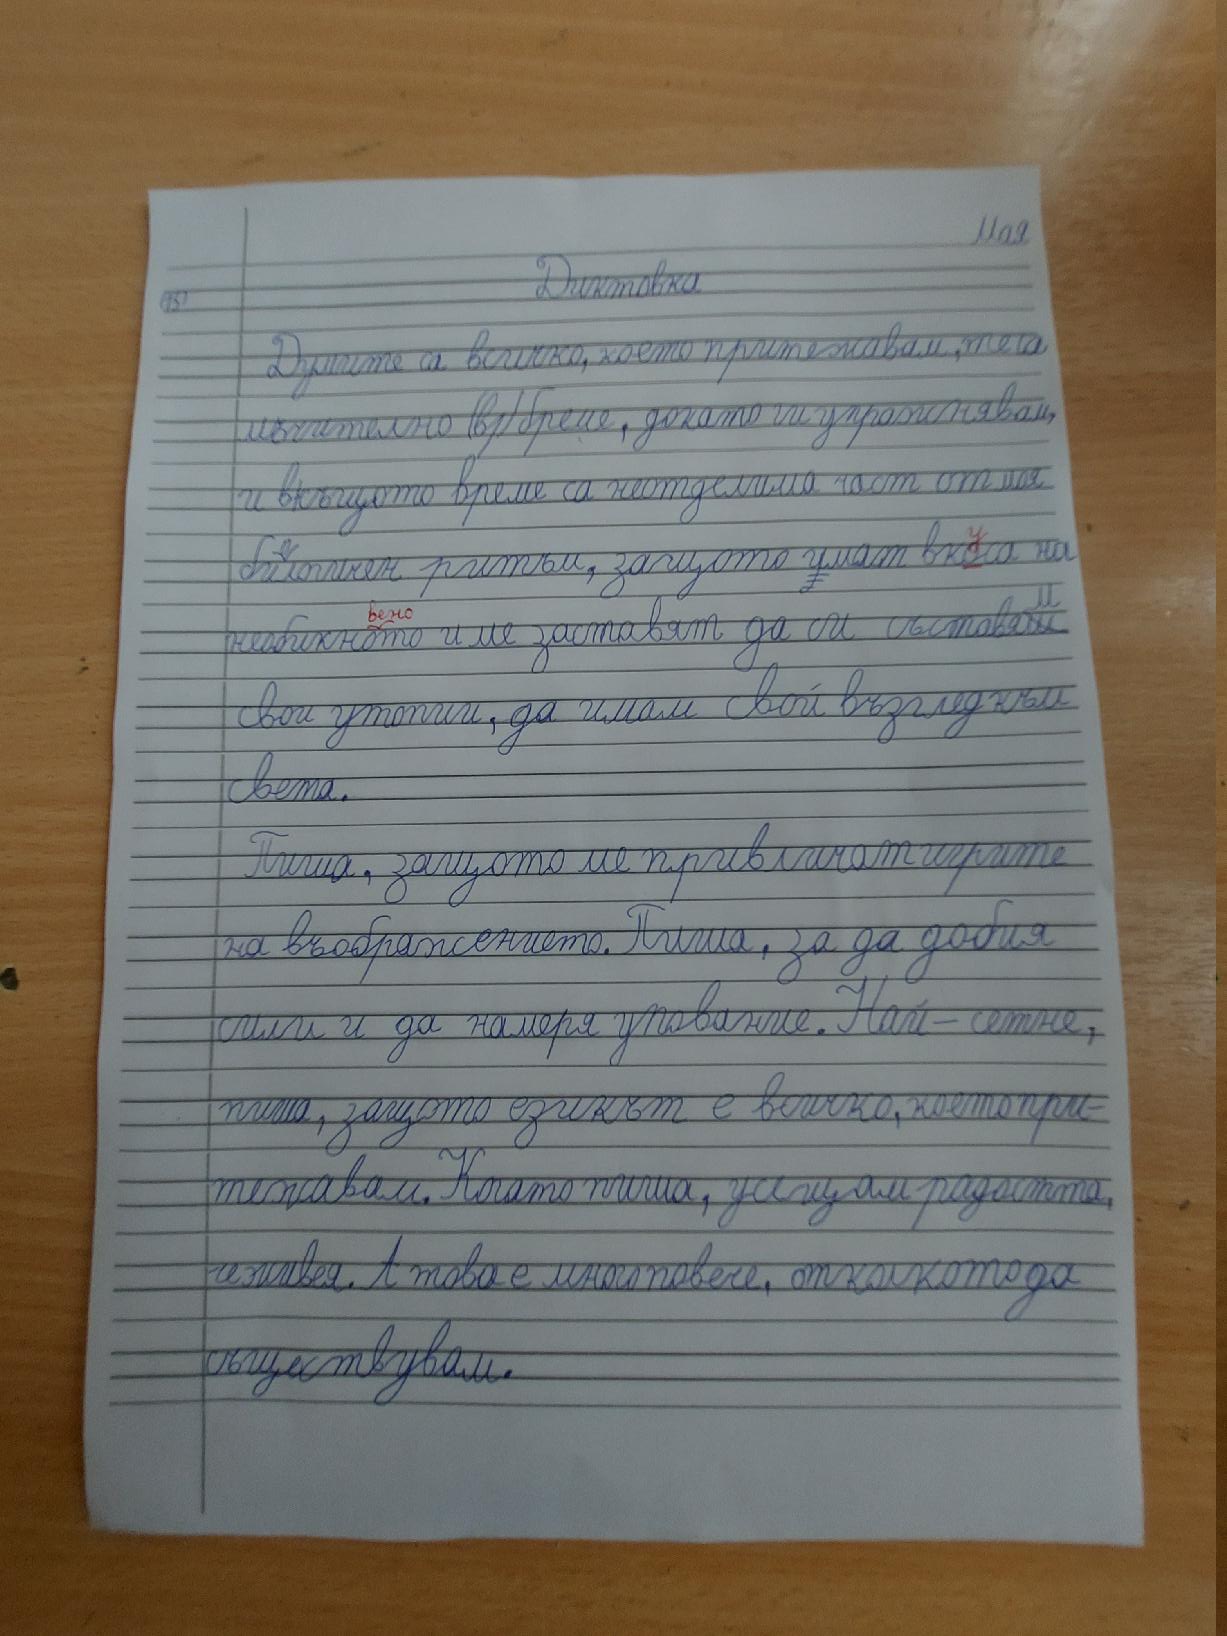 Мая
Диктовка
Думите са всичко, което притежавам, те са
мъчително (вр) бреме, докато ги упражнявам,
и в същото време са неотделима част от моя
биологичен ритъм, защото имат вкуса на
необикновеното и ме заставят да си съставям
свои утопии, да имам свой възглед към
света.
Пиша, защото ме привличат игрите
на въображението. Пиша, за да добия
сили и да намеря упование. Най-сетне,
пиша, защото езикът е всичко, което при-
тежавам. Когато пиша, усещам радостта,
че живея. А това е много повече, отколкото да
съществувам.